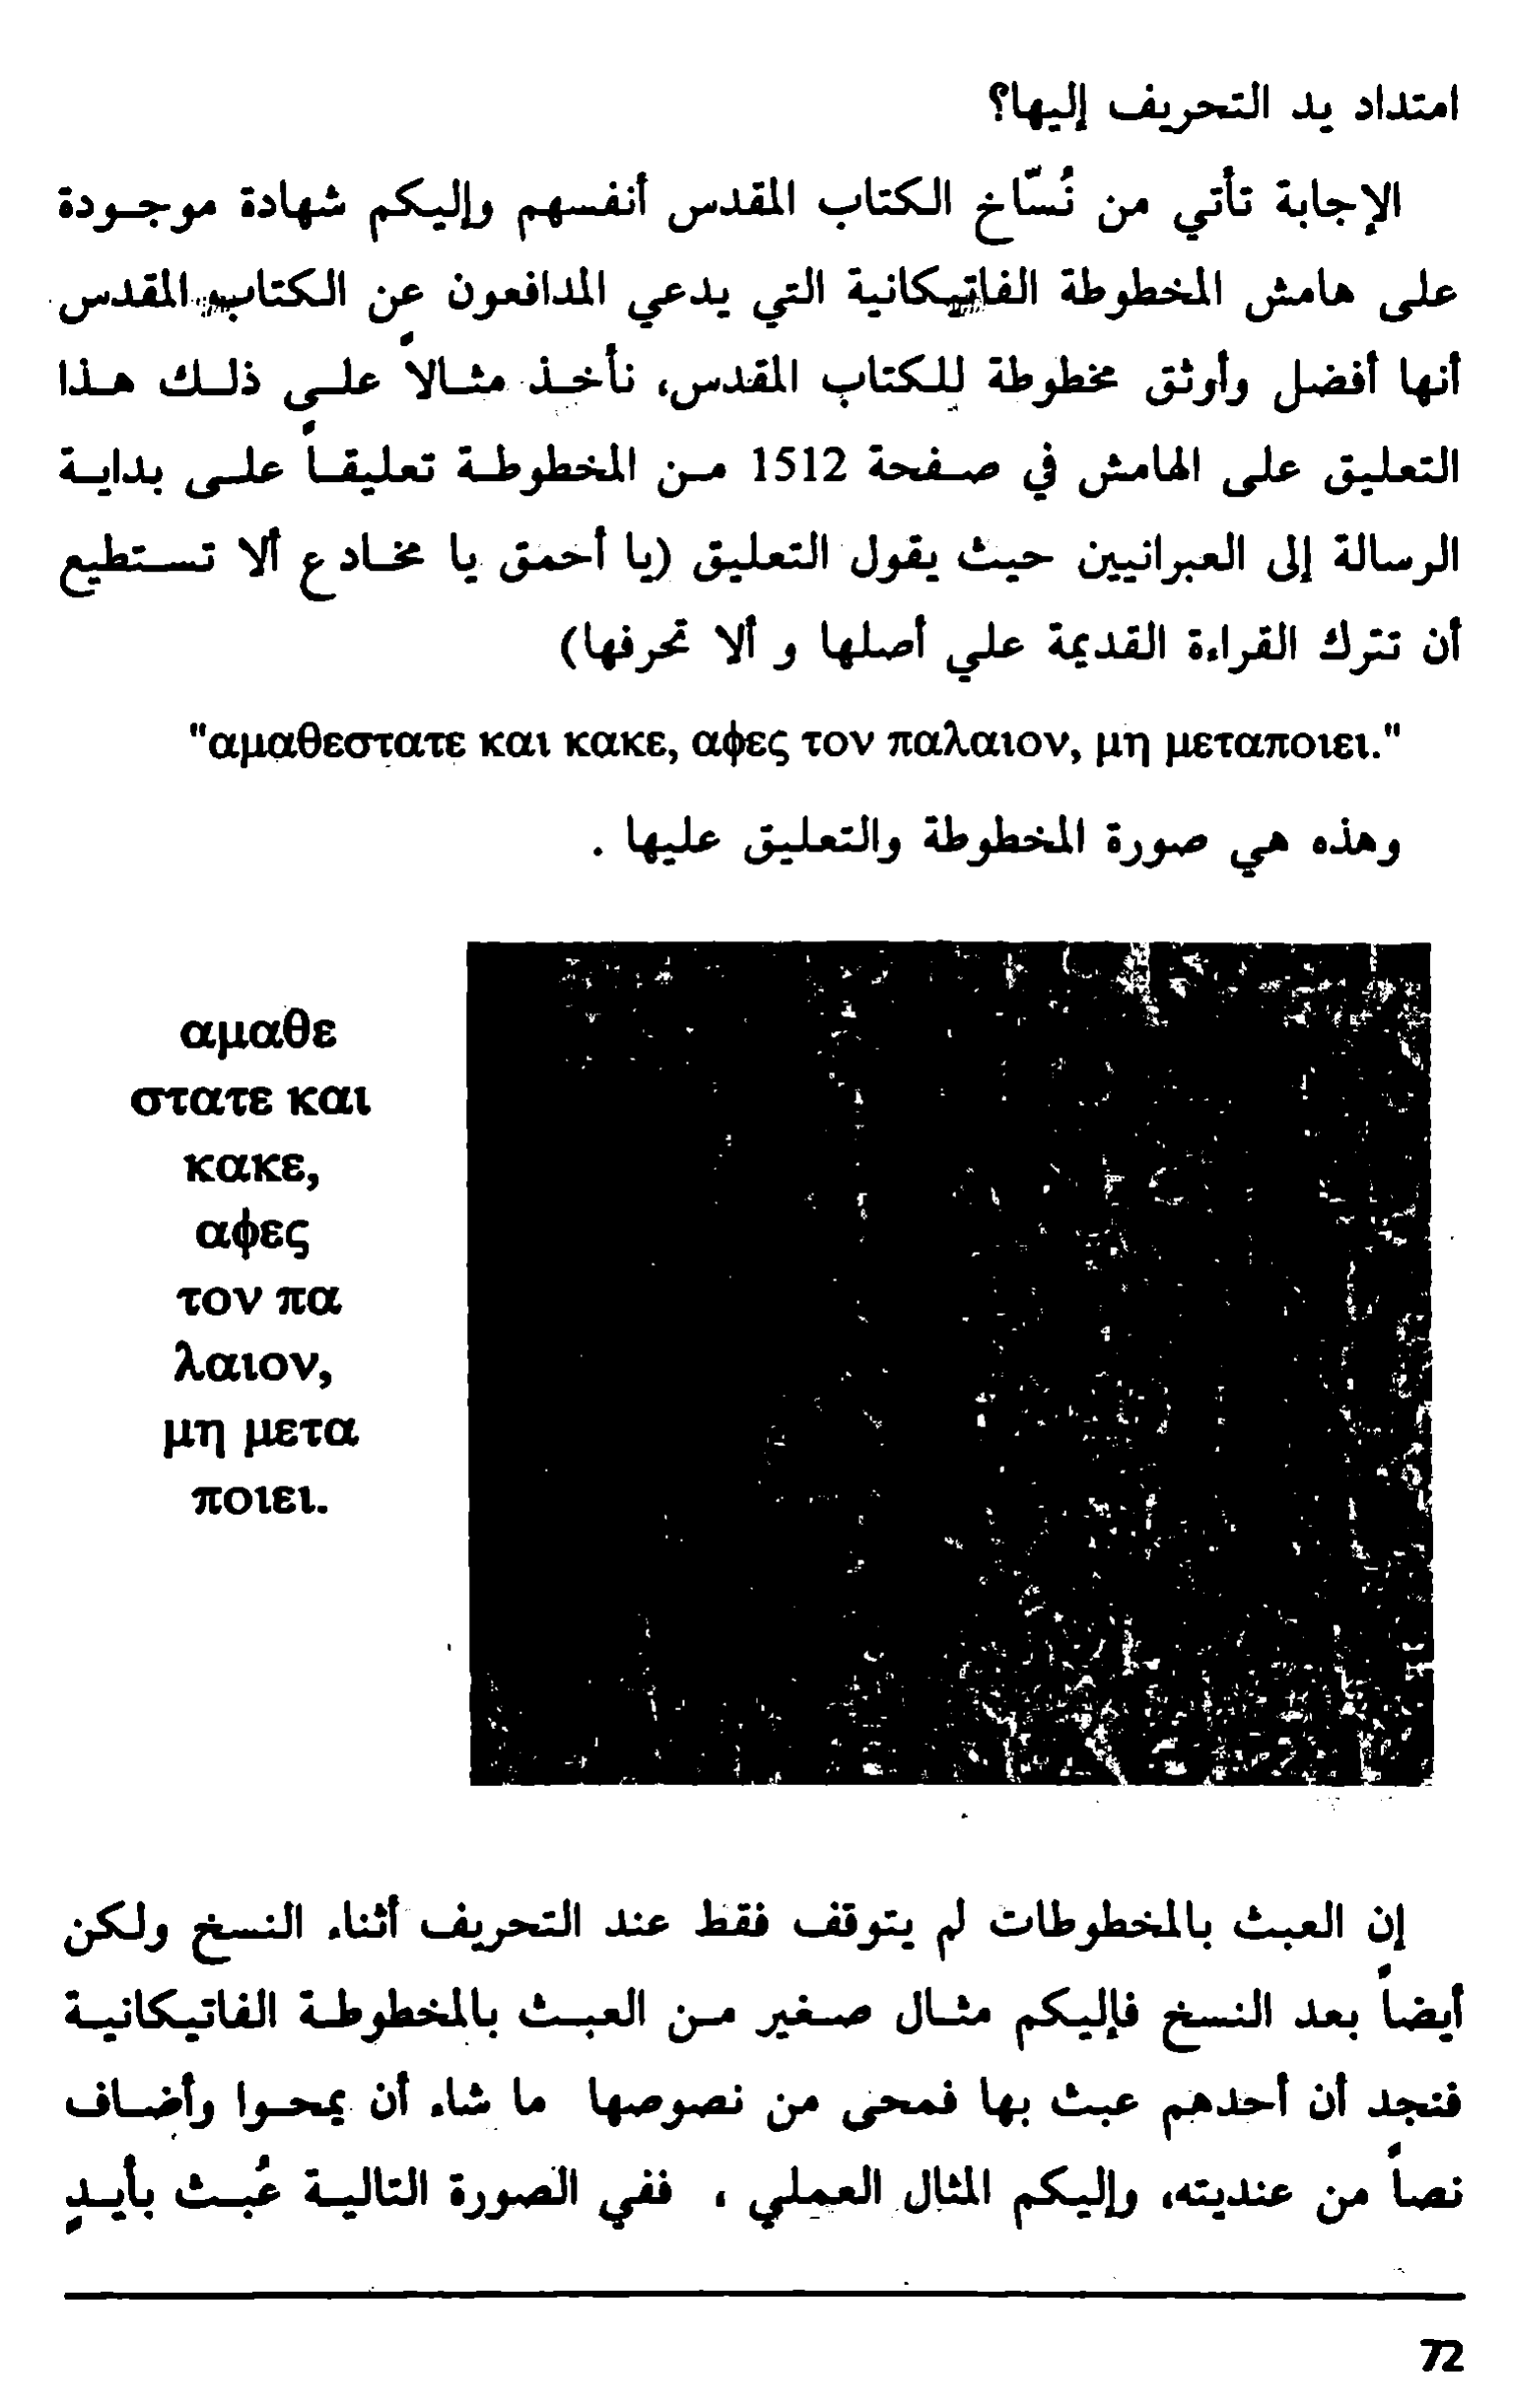 امتداد يد التحريف إليها؟
الإجابة تأتي من نُسّاخ الكتاب المقدس أنفسهم وإليكم شهادة موجودة
على هامش المخطوطة الفاتيكانية التي يدعي المدافعون عن الكتاب المقدس
أنها أفضل وأوثق مخطوطة للكتاب المقدس، نأخذ مثالاً على ذلك هذا
التعليق على الهامش في صفحة 1512 من المخطوطة تعليقاً على بداية
الرسالة إلى العبرانيين حيث يقول التعليق (يا أحمق يا مخادع ألا تستطيع
أن تترك القراءة القديمة علي أصلها و ألا تحرفها)
"αμαθεστατε και κακε, αφες τον παλαιον, μη μεταποιει."
وهذه هي صورة المخطوطة والتعليق عليها .
αμαθε
στατε και
κακε,
αφες
τον πα
λαιον,
μη μετα
ποιει.
إن العبث بالمخطوطات لم يتوقف فقط عند التحريف أثناء النسخ ولكن
أيضاً بعد النسخ فإليكم مثال صغير من العبث بالمخطوطة الفاتيكانية
فتجد أن أحدهم عبث بها فمحى من نصوصها ما شاء أن يمحوا وأضاف
نصاً من عنديته، وإليكم المثال العملي ، ففي الصورة التالية عُبث بأيدٍ
72